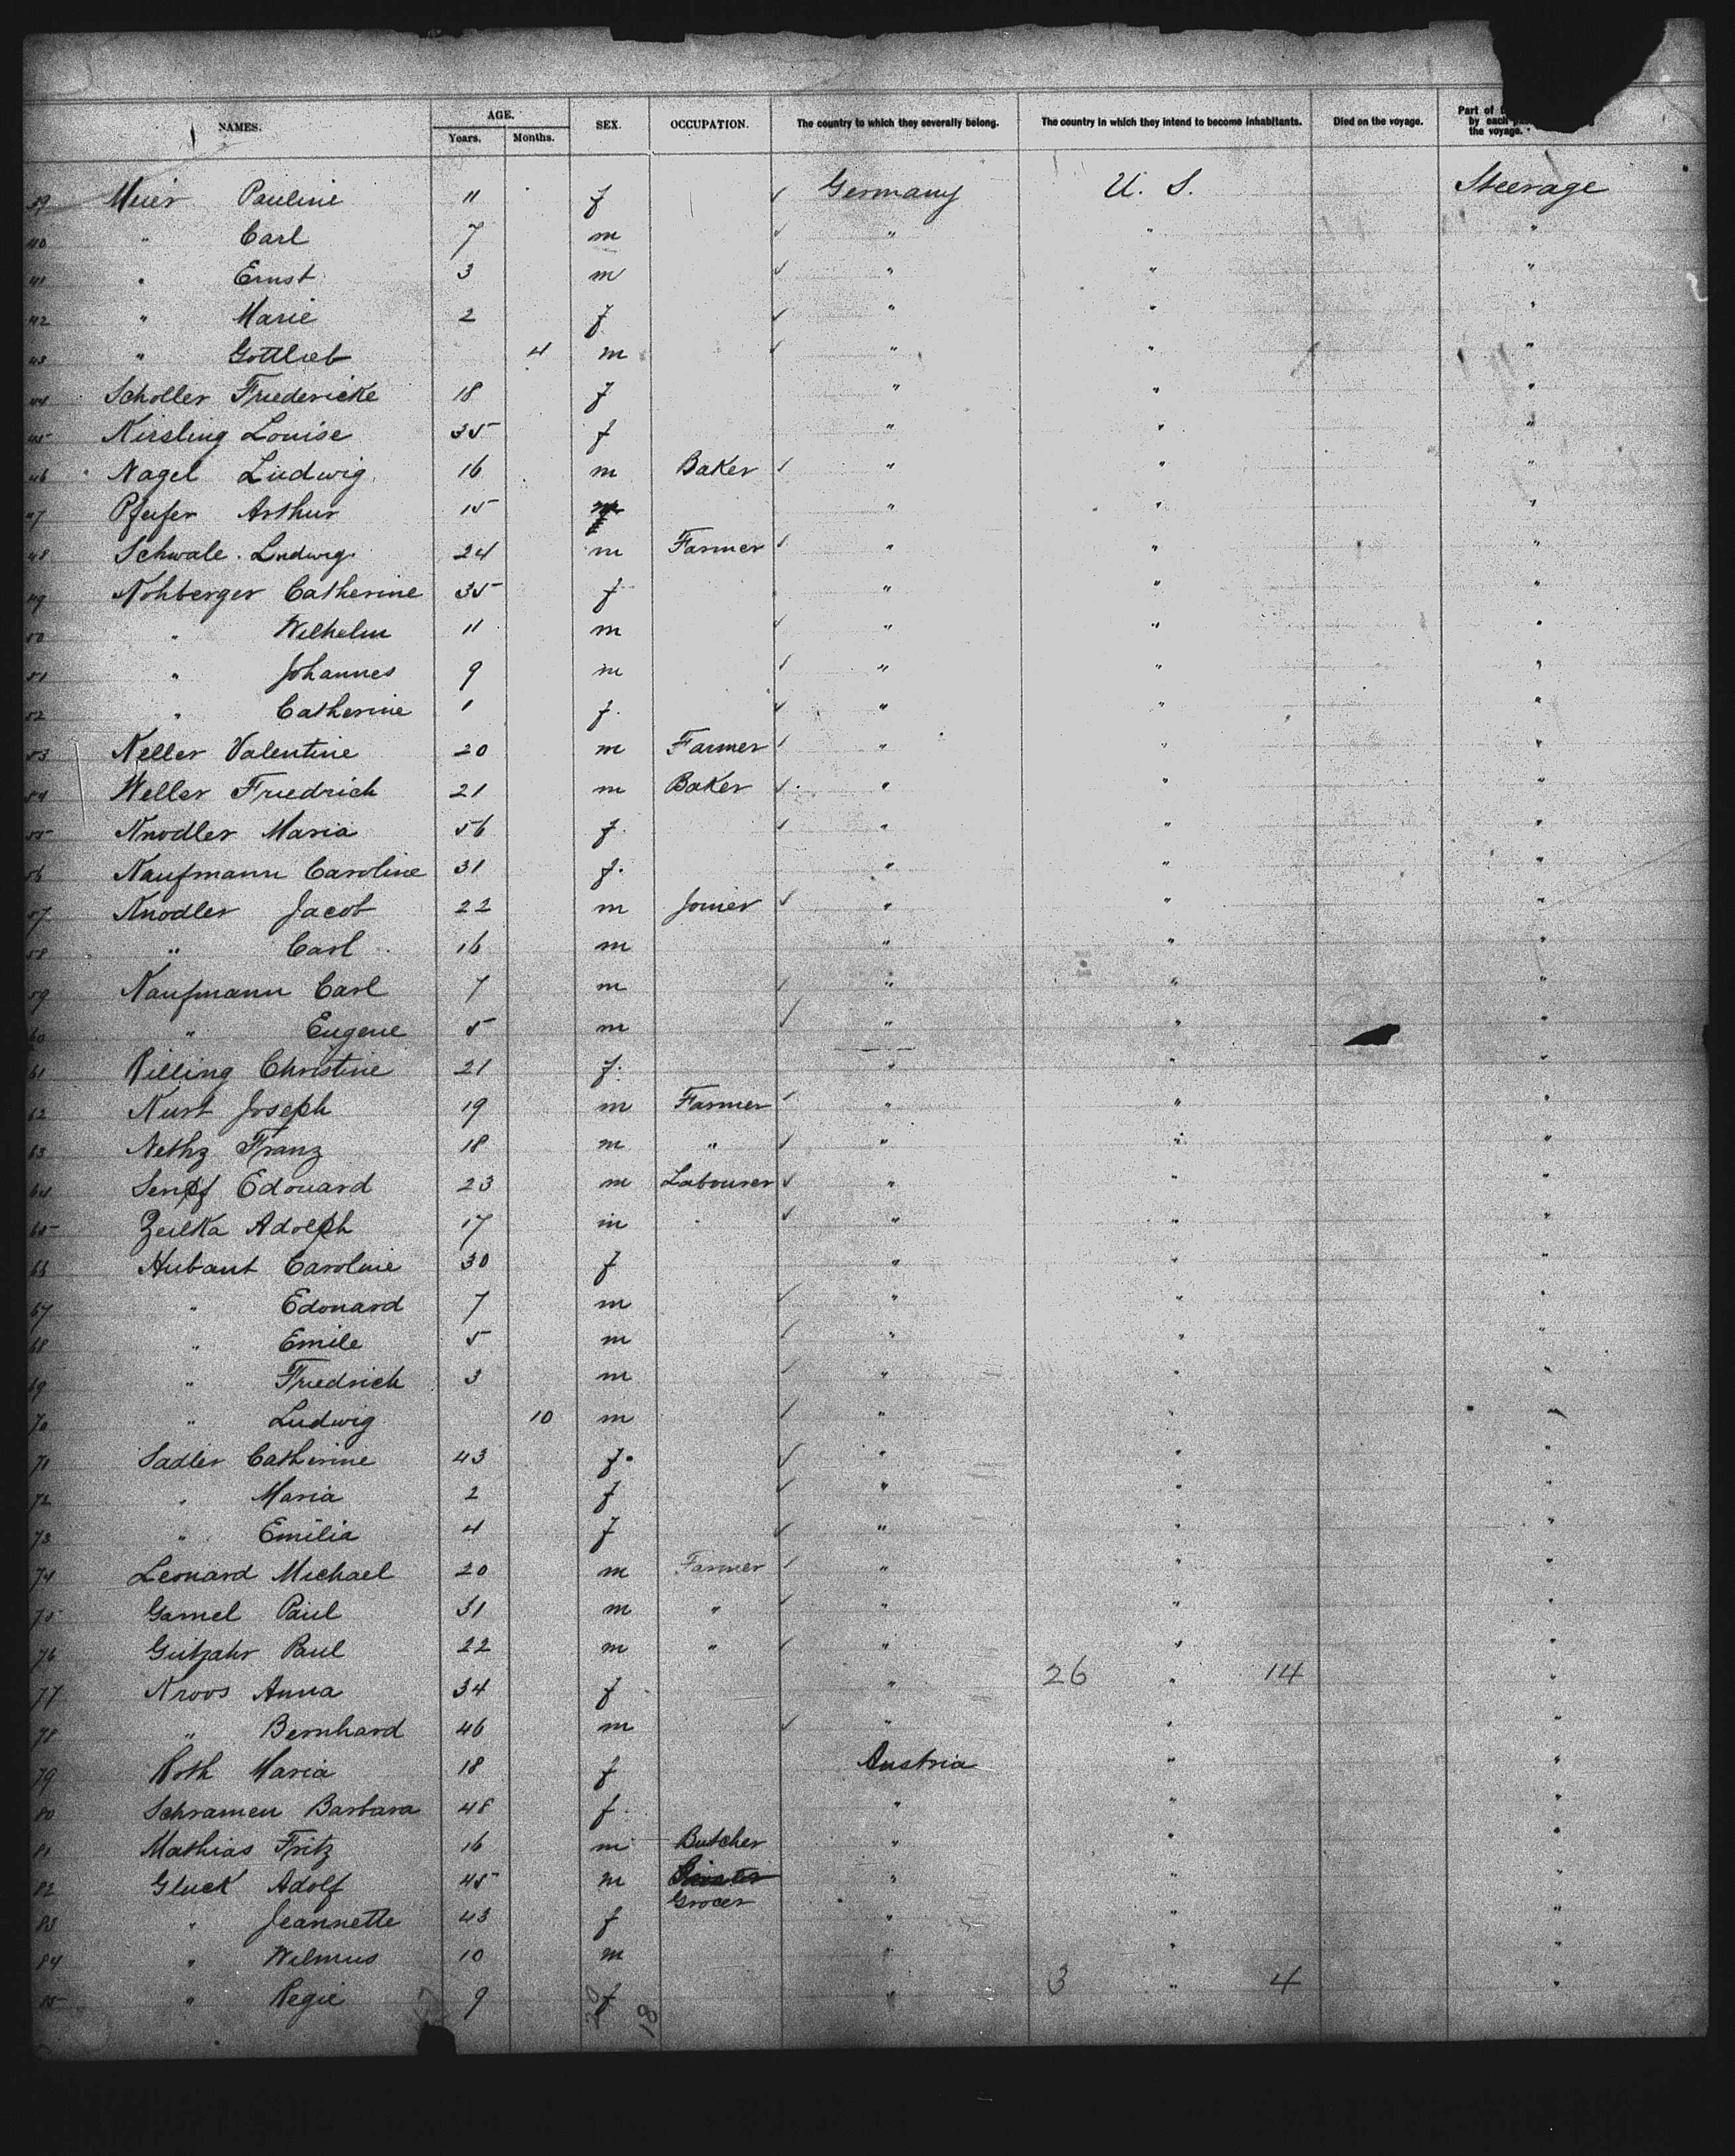 NAMES. AGE. SEX. OCCUPATION. The country to which they severally belong. The country in which they intend to become inhabitants. Died on the voyage. Part of
Years. Months. by each
the voyage.
39 Meier Pauline 11 f Germany U. S. Steerage
40 " Carl 7 m " " "
41 " Ernst 3 m " " "
42 " Marie 2 f " " "
43 " Gottlieb 4 m " " "
44 Scholler Friedericke 18 f " " "
45 Kirsling Louise 35 f " " "
46 Nagel Ludwig 16 m Baker " " "
47 Pfeifer Arthur 15 " " "
48 Schwale Ludwig 24 m Farmer " " "
49 Nohberger Catherine 35 f " " "
50 " Wilhelm 11 m " " "
51 " Johannes 9 m " " "
52 " Catherine 1 f " " "
53 Keller Valentine 20 m Farmer " " "
54 Weller Friedrich 21 m Baker " " "
55 Knodler Maria 56 f " " "
56 Kaufmann Caroline 31 f " " "
57 Knodler Jacob 22 m Joiner " " "
58 " Carl 16 m " " "
59 Kaufmann Carl 7 m " " "
60 " Eugene 5 m " " "
61 Rilling Christine 21 f " " "
62 Kurt Joseph 19 m Farmer " " "
63 Nethz Franz 18 m " " " "
64 Senpf Edouard 23 m Labourer " " "
65 Zeilka Adolph 17 m " " "
66 Hubant Caroline 30 f " " "
67 " Edouard 7 m " " "
68 " Emile 5 m " " "
69 " Friedrich 3 m " " "
70 " Ludwig 10 m " " "
71 Sadler Catherine 43 f " " "
72 " Maria 2 f " " "
73 " Emilia 4 f " " "
74 Leonard Michael 20 m Farmer " " "
75 Gamel Paul 31 m " " " "
76 Gutzahr Paul 22 m " " " "
77 Kroos Anna 34 f " 26 " 14 "
78 " Bernhard 46 m " " "
79 Roth Maria 18 f Austria " "
80 Schramen Barbara 48 f " " "
81 Mathias Fritz 16 m Butcher " " "
82 Gluck Adolf 45 m Grocer " " "
83 " Jeannette 43 f " " "
84 " Wilmus 10 m " " "
85 " Regie 9 f " 3 " 4 "
18